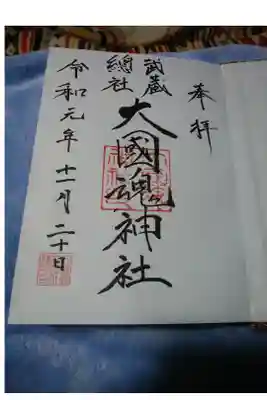 奉拝
武蔵
總社
大國魂神社
令和元年十一月二十日